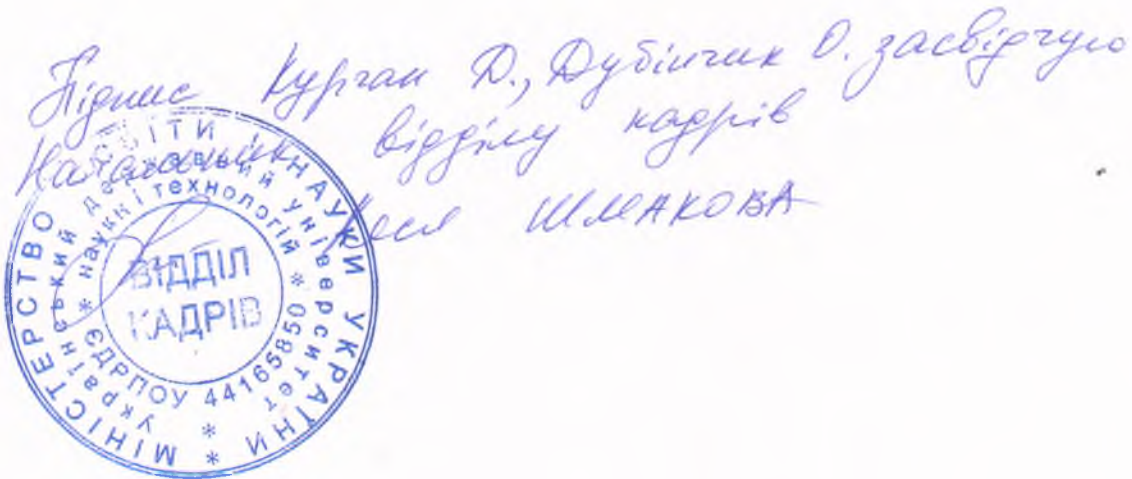 Підпис Курган Д., Дубінчик О. засвідчую
Начальник відділу кадрів
Леся ШМАКОВА
МІНІСТЕРСТВО ОСВІТИ І НАУКИ УКРАЇНИ *
Український державний університет
* науки і технологій *
ЄДРПОУ 44165850
ВІДДІЛ
КАДРІВ